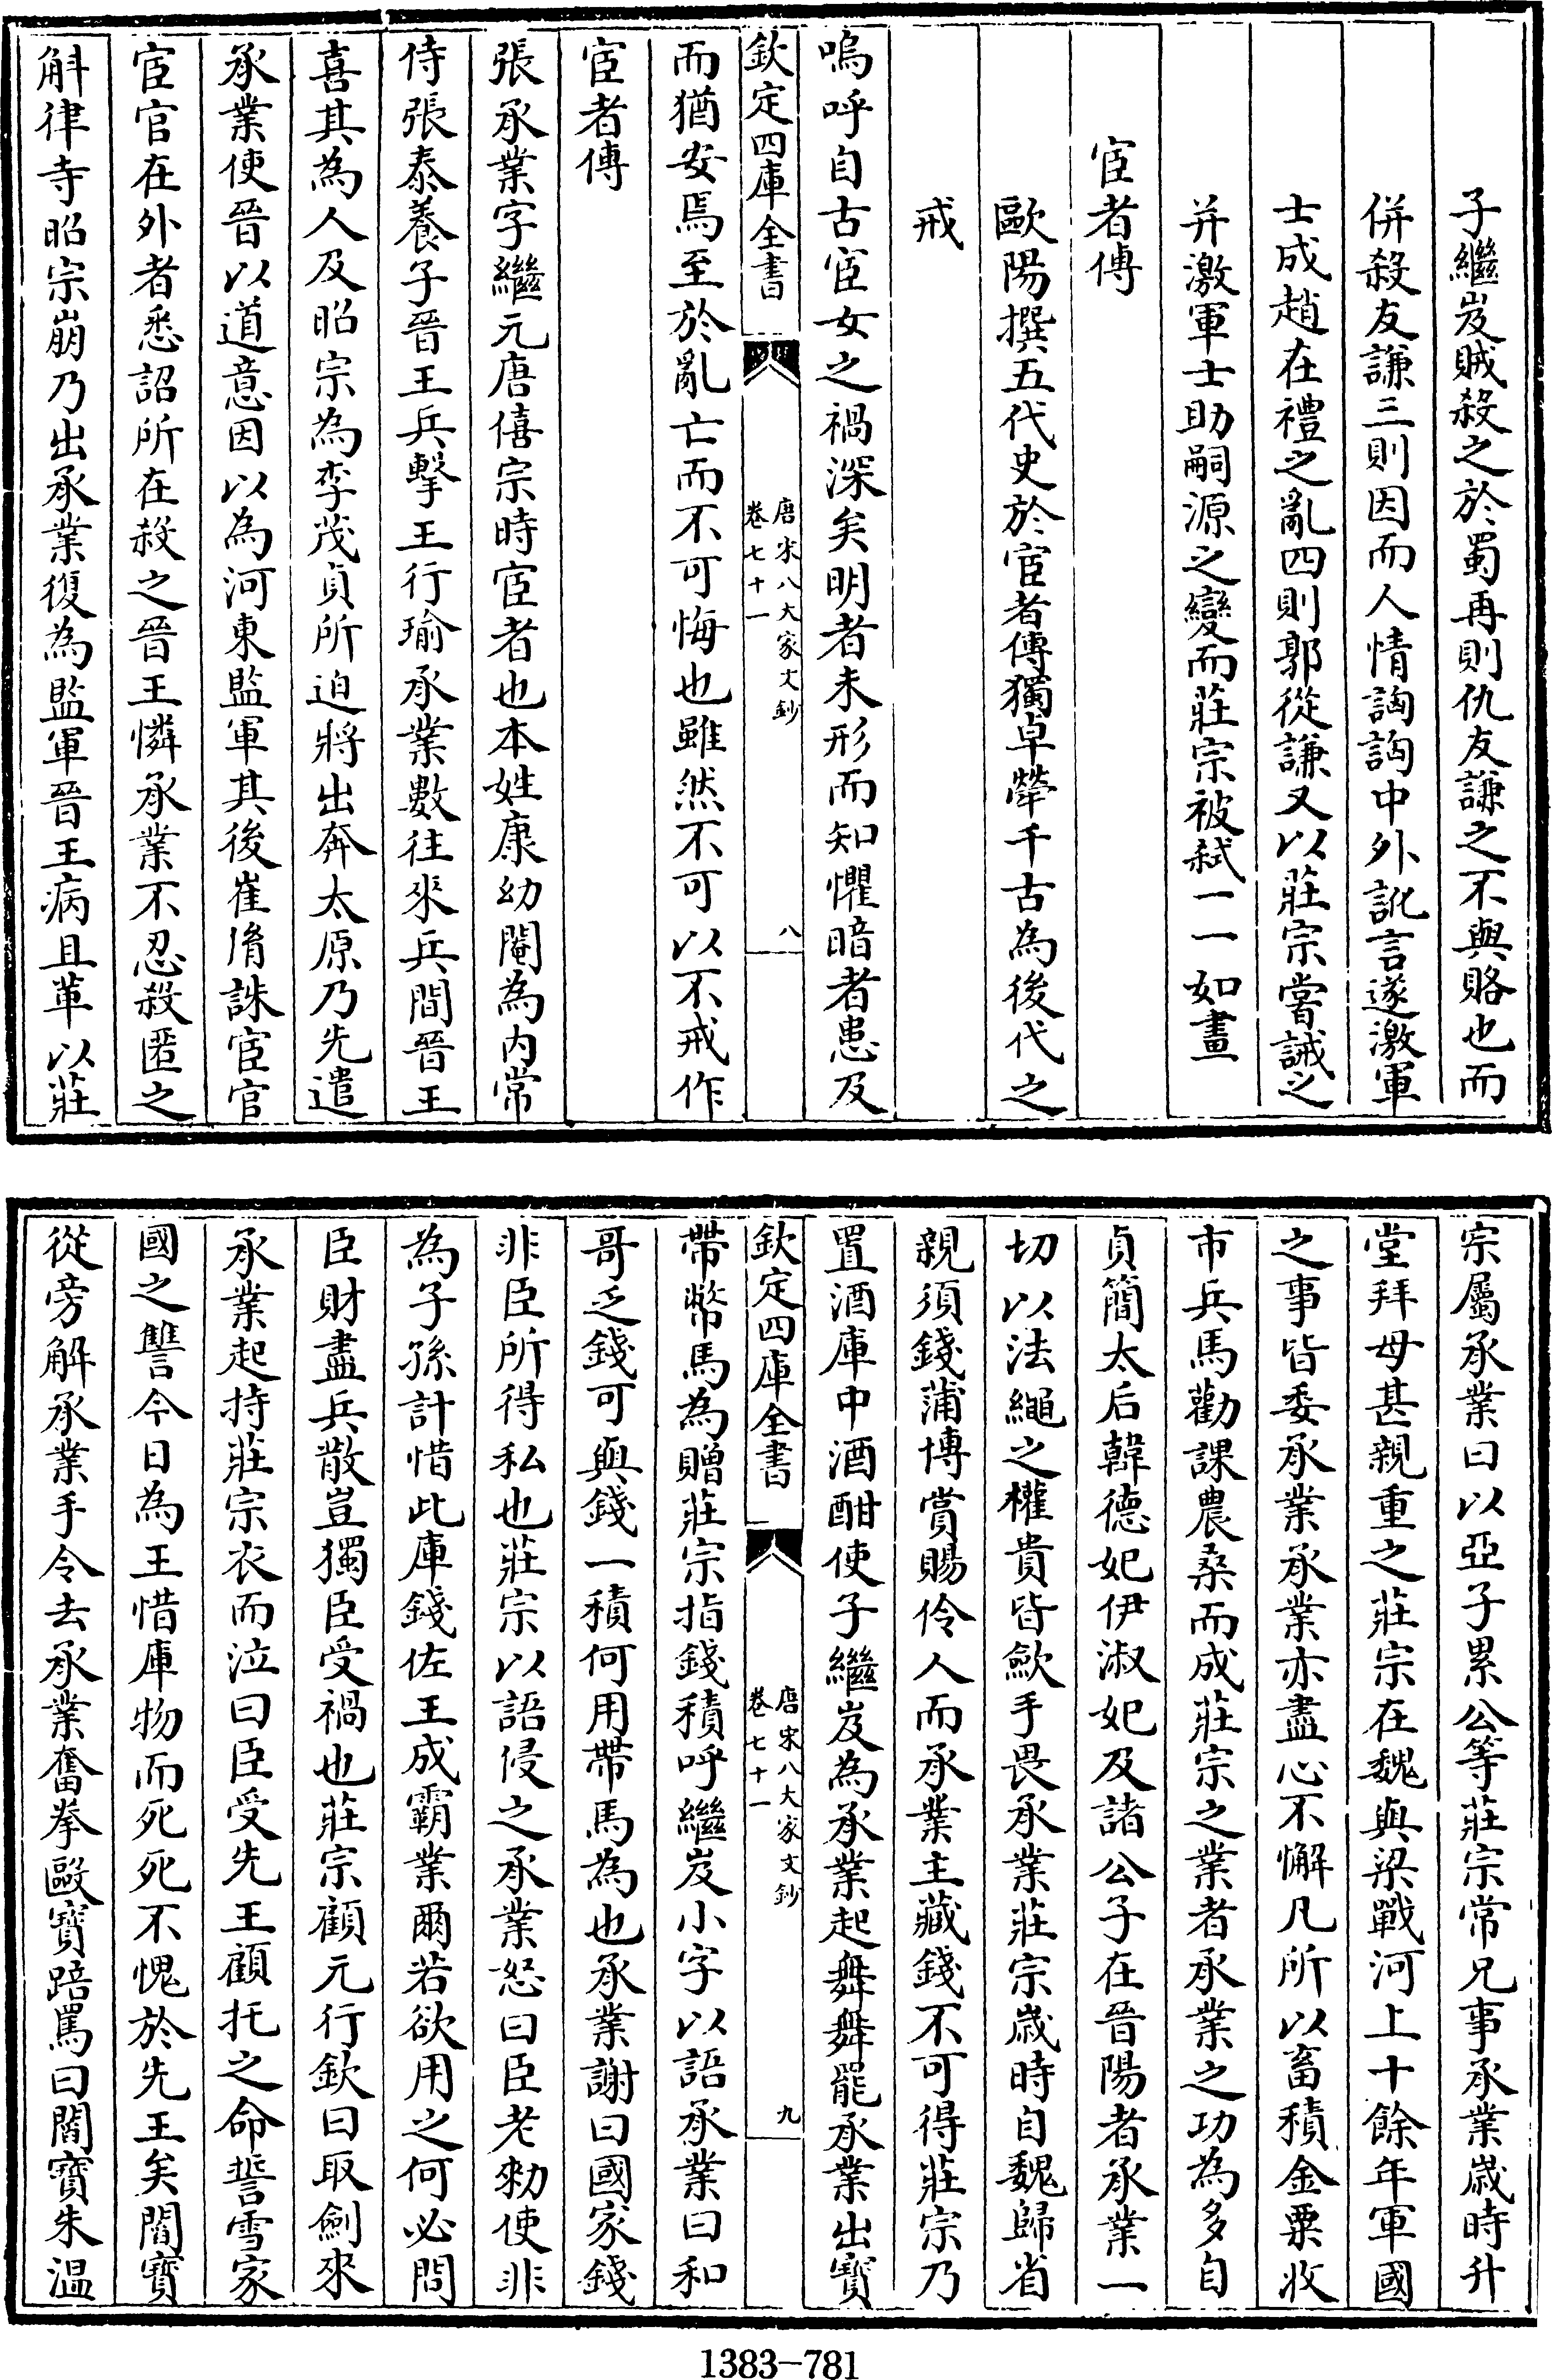 子繼岌賊殺之於蜀再則仇友謙之不與賂也而
併殺友謙三則因而人情詾詾中外訛言遂激軍
士成趙在禮之亂四則郭從謙又以莊宗嘗誡之
并激軍士助嗣源之變而莊宗被弑一一如畫
宦者傳
歐陽撰五代史於宦者傳獨卓犖千古為後代之
戒
嗚呼自古宦女之禍深矣明者未形而知懼暗者患及
欽定四庫全書
唐宋八大家文鈔
卷七十一
八
而猶安焉至於亂亡而不可悔也雖然不可以不戒作
宦者傳
張承業字繼元唐僖宗時宦者也本姓康幼閹為內常
侍張泰養子晉王兵擊王行瑜承業數往來兵間晉王
喜其為人及昭宗為李茂貞所迫將出奔太原乃先遣
承業使晉以道意因以為河東監軍其後崔脩誅宦官
宦官在外者悉詔所在殺之晉王憐承業不忍殺匿之
斛律寺昭宗崩乃出承業復為監軍晉王病且革以莊
宗屬承業曰以亞子累公等莊宗常兄事承業歲時升
堂拜母甚親重之莊宗在魏與梁戰河上十餘年軍國
之事皆委承業承業亦盡心不懈凡所以畜積金粟收
市兵馬勸課農桑而成莊宗之業者承業之功為多自
貞簡太后韓德妃伊淑妃及諸公子在晉陽者承業一
切以法繩之權貴皆歛手畏承業莊宗歲時自魏歸省
親須錢蒲博賞賜伶人而承業主藏錢不可得莊宗乃
置酒庫中酒酣使子繼岌為承業起舞舞罷承業出寶
欽定四庫全書
唐宋八大家文鈔
卷七十一
九
帶幣馬為贈莊宗指錢積呼繼岌小字以語承業曰和
哥乏錢可與錢一積何用帶馬為也承業謝曰國家錢
非臣所得私也莊宗以語侵之承業怒曰臣老勑使非
為子孫計惜此庫錢佐王成霸業爾若欲用之何必問
臣財盡兵散豈獨臣受禍也莊宗顧元行欽曰取劍來
承業起持莊宗衣而泣曰臣受先王顧托之命誓雪家
國之讐今日為王惜庫物而死死不愧於先王矣閻寶
從旁解承業手令去承業奮拳毆寶踣罵曰閻寶朱温
1383-781